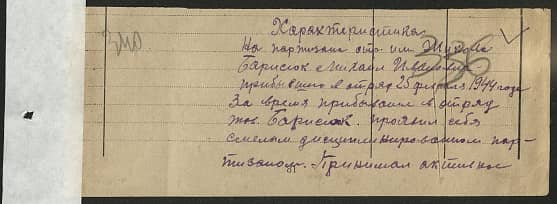 Характеристика
На партизана отр. им Жукова
Барисюк Михаил Иванович
прибывшего в отряд 25 февраля 1944 года
За время прибывания в отряде
тов. Барисюк. проявил себя
смелым дисциплинированном пар-
тизаном. Принимал активное
356